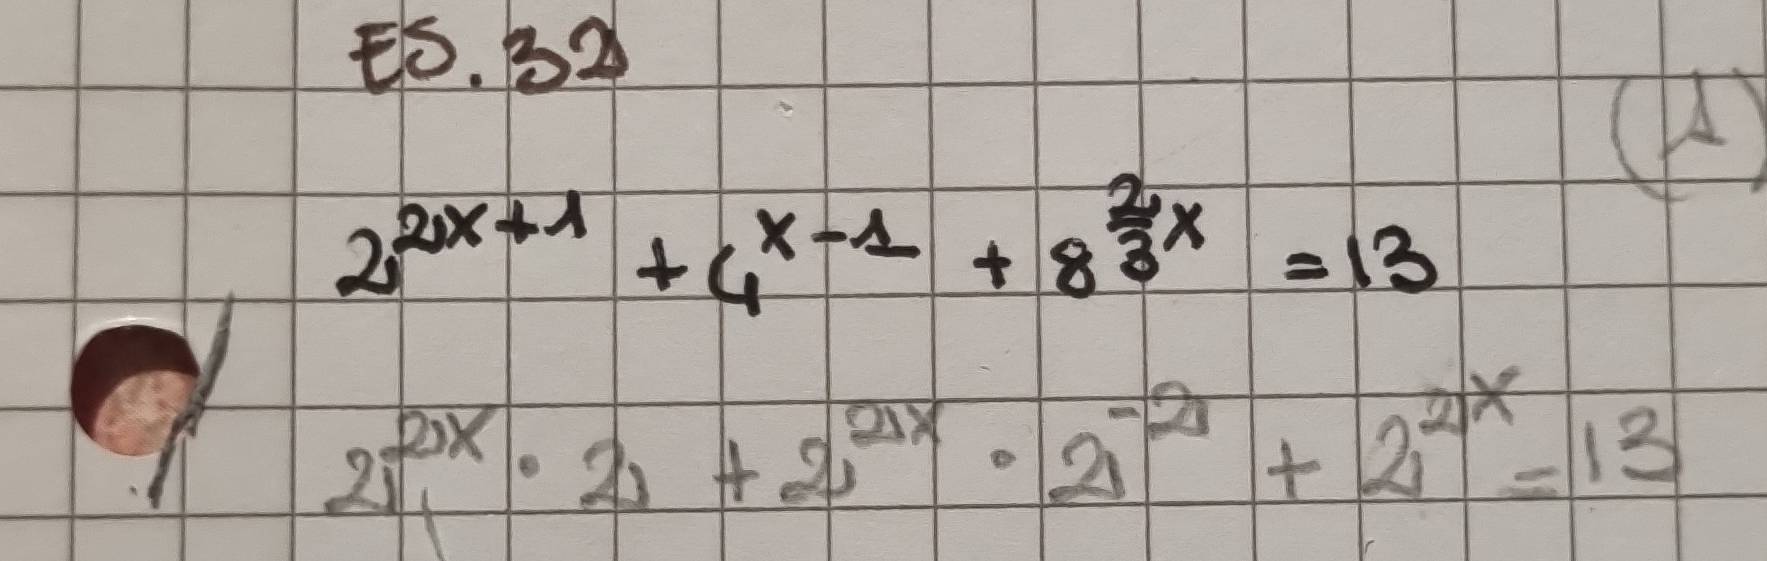 ES. 32
(1)
2^{2x+1} + 4^{x-1} + 8^{\frac{2}{3}x} = 13
2^{2x} · 2 + 2^{2x} · 2^{-2} + 2^{2x} = 13